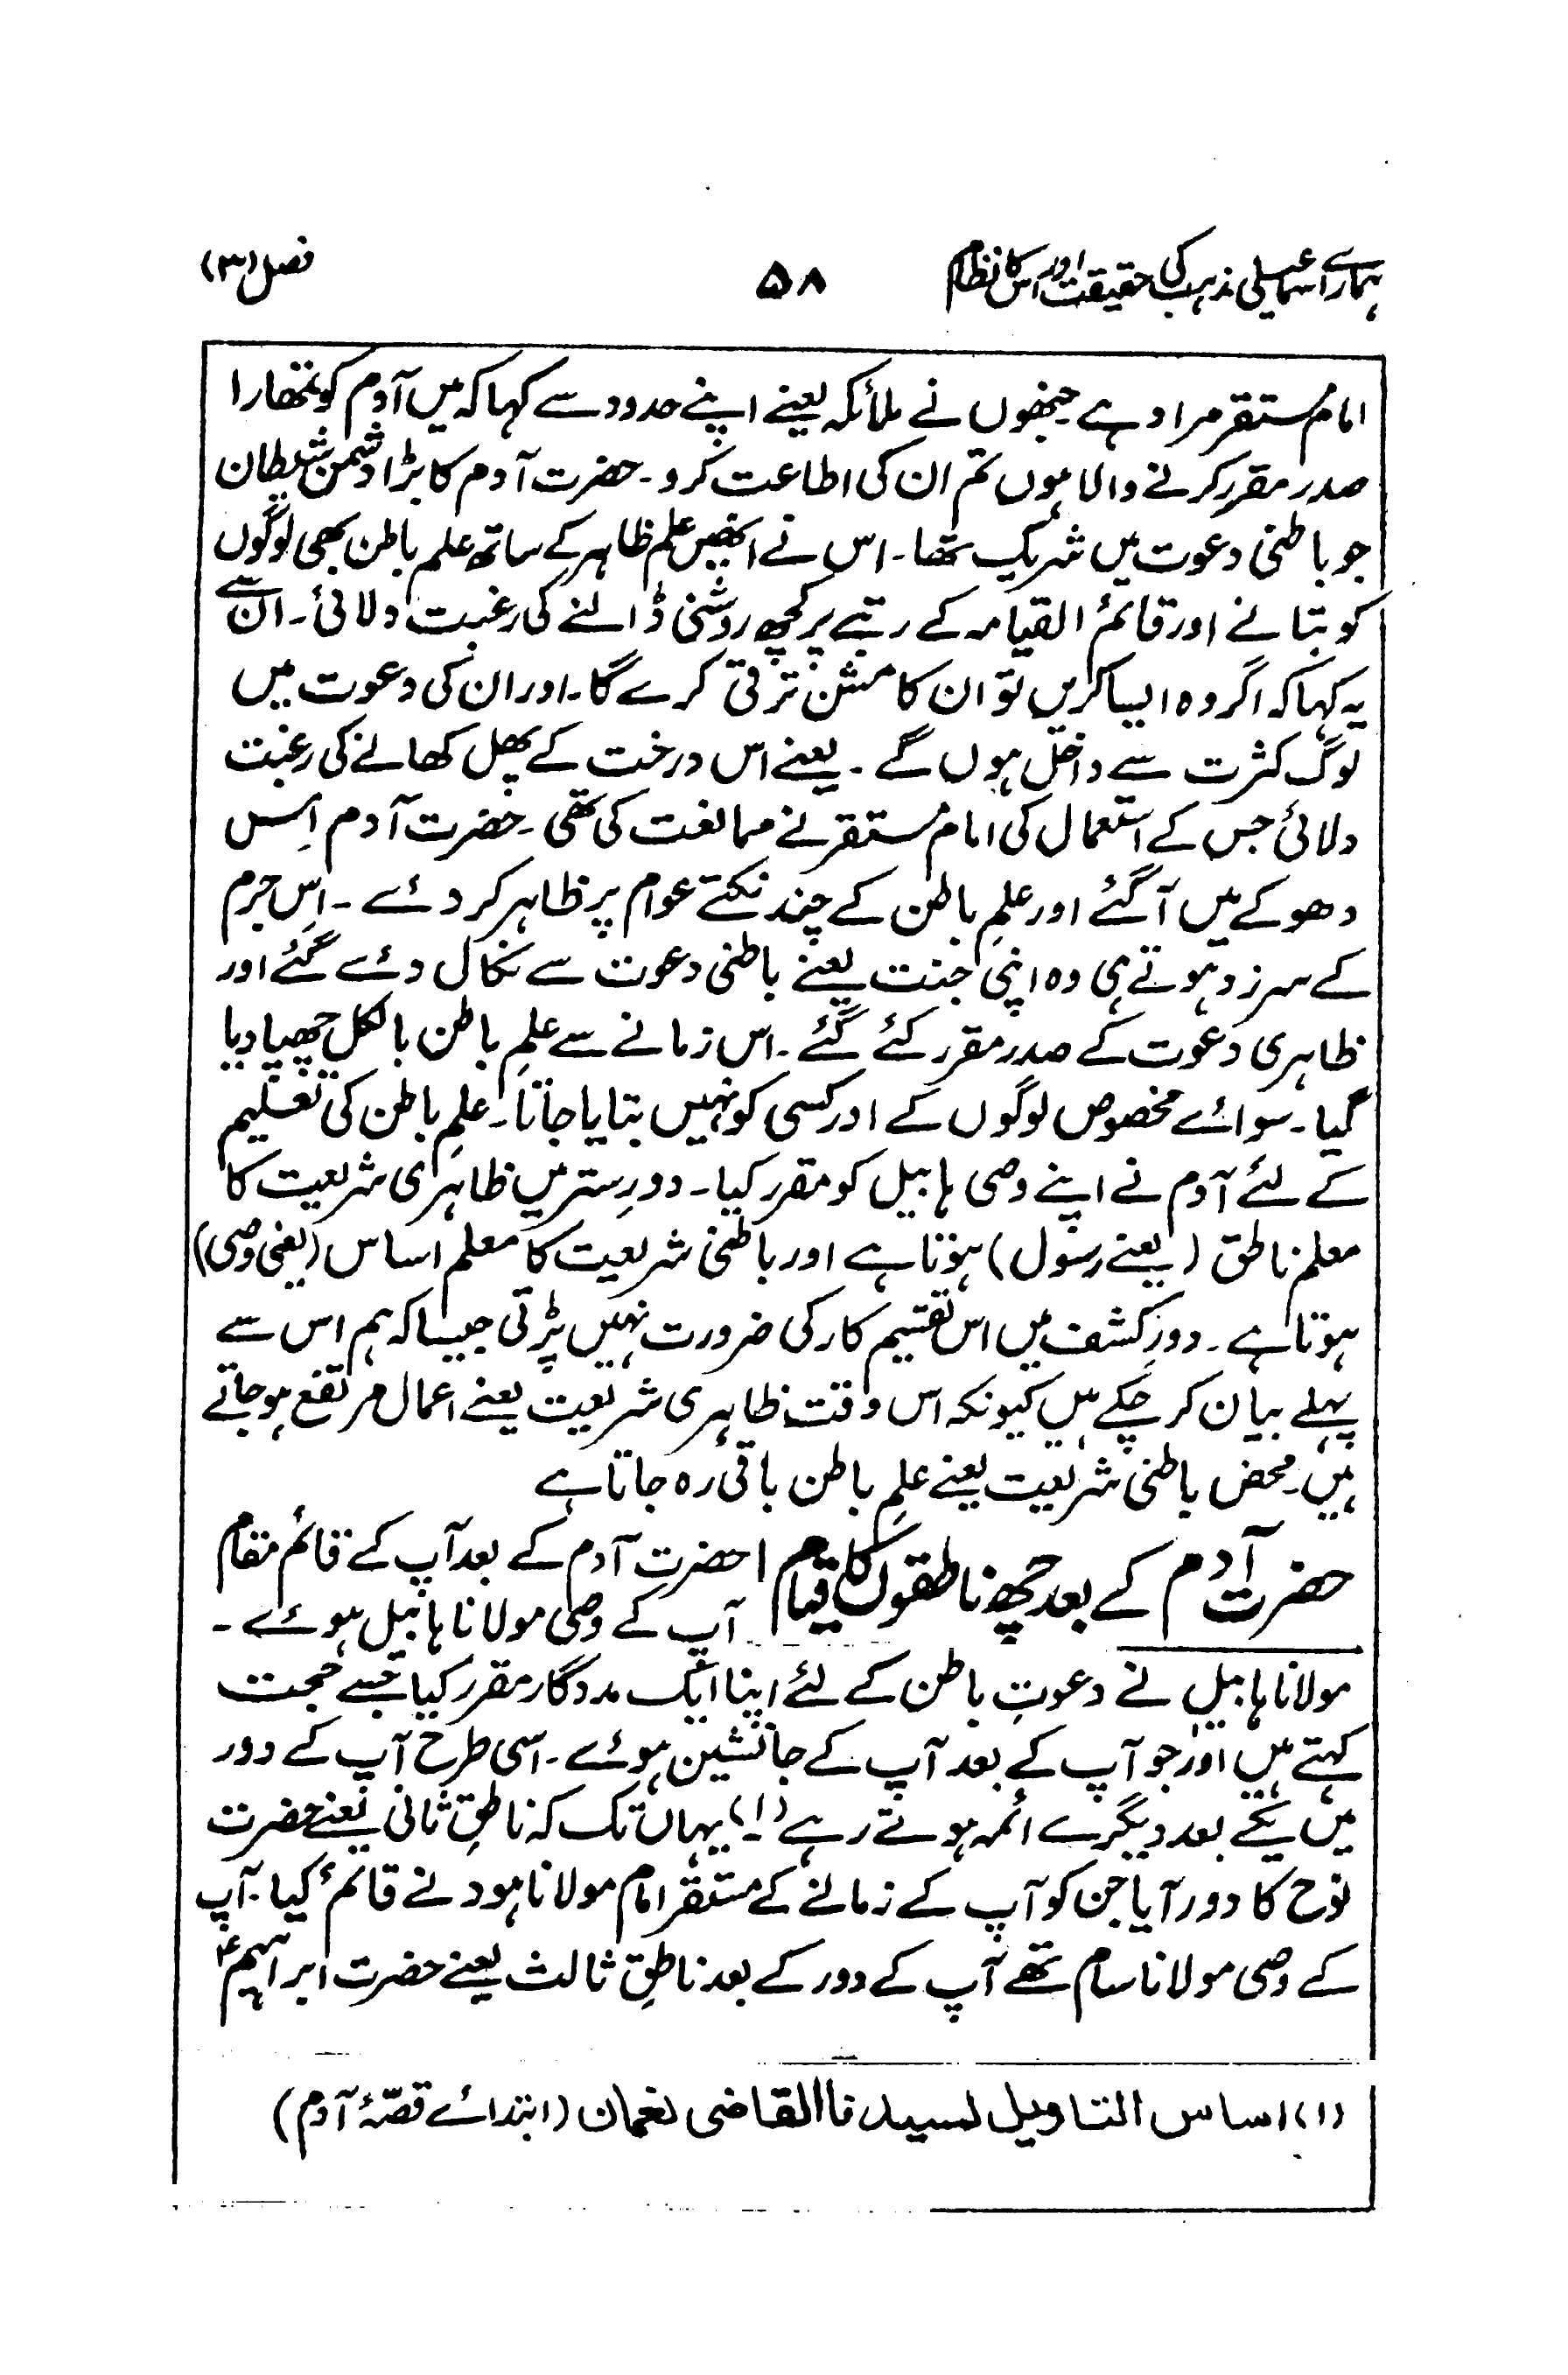 ہمارے اسماعیلی مذہب کی حقیقت اور اس کا نظام ۵۸ فصل (۳)
امام مستقر مراد ہے جنھوں نے ملائکہ یعنے اپنے حدود سے کہا کہ میں آدم کو تمھارا
صدر مقرر کرنے والا ہوں تم ان کی اطاعت کرو۔ حضرت آدم کا بڑا دشمن شیطان
جو باطنی دعوت میں شریک تھا۔ اس نے انھیں علم ظاہر کے ساتھ علم باطن بھی لوگوں
کو بتانے اور قائم القیامہ کے رتبے پر کچھ روشنی ڈالنے کی رغبت دلائی۔ ان سے
یہ کہا کہ اگر وہ ایسا کریں تو ان کا مشن ترقی کرے گا۔ اور ان کی دعوت میں
لوگ کثرت سے داخل ہوں گے۔ یعنے اس درخت کے پھل کھانے کی رغبت
دلائی جس کے استعمال کی امام مستقر نے ممانعت کی تھی۔ حضرت آدم اِس
دھوکے میں آگئے اور علمِ باطن کے چند نکتے عوام پر ظاہر کر دئے۔ اِس جرم
کے سرزد ہوتے ہی وہ اپنی جنت یعنے باطنی دعوت سے نکال دئے گئے اور
ظاہری دعوت کے صدر مقرر کئے گئے۔ اس زمانے سے علمِ باطن بالکل چھپا دیا
گیا۔ سوائے مخصوص لوگوں کے اور کسی کو نہیں بتایا جاتا۔ علمِ باطن کی تعلیم
کے لئے آدم نے اپنے وصی ہابیل کو مقرر کیا۔ دورِ ستر میں ظاہری شریعت کا
معلم ناطق (یعنے رسول) ہوتا ہے اور باطنی شریعت کا معلم اساس (یعنی وصی)
ہوتا ہے۔ دورِ کشف میں اس تقسیم کار کی ضرورت نہیں پڑتی جیسا کہ ہم اس سے
پہلے بیان کر چکے ہیں کیونکہ اس وقت ظاہری شریعت یعنے اعمال مرتفع ہو جاتے
ہیں۔ محض باطنی شریعت یعنے علمِ باطن باقی رہ جاتا ہے
حضرت آدم کے بعد چھ ناطقوں کا قیام | حضرت آدم کے بعد آپ کے قائم مقام
آپ کے وصی مولانا ہابیل ہوئے۔
مولانا ہابیل نے دعوتِ باطن کے لئے اپنا ایک مددگار مقرر کیا جسے حجت
کہتے ہیں اور جو آپ کے بعد آپ کے جانشین ہوئے۔ اسی طرح آپ کے دور
میں یکے بعد دیگرے ائمہ ہوتے رہے (۱) یہاں تک کہ ناطقِ ثانی یعنے حضرت
نوح کا دور آیا جن کو آپ کے زمانے کے مستقر امام مولانا ہود نے قائم کیا۔ آپ
کے وصی مولانا سام تھے آپ کے دور کے بعد ناطقِ ثالث یعنے حضرت ابراہیمؑ
(۱) اساس التاویل لسیدنا القاضی نعمان (ابتدائے قصّۂ آدم)